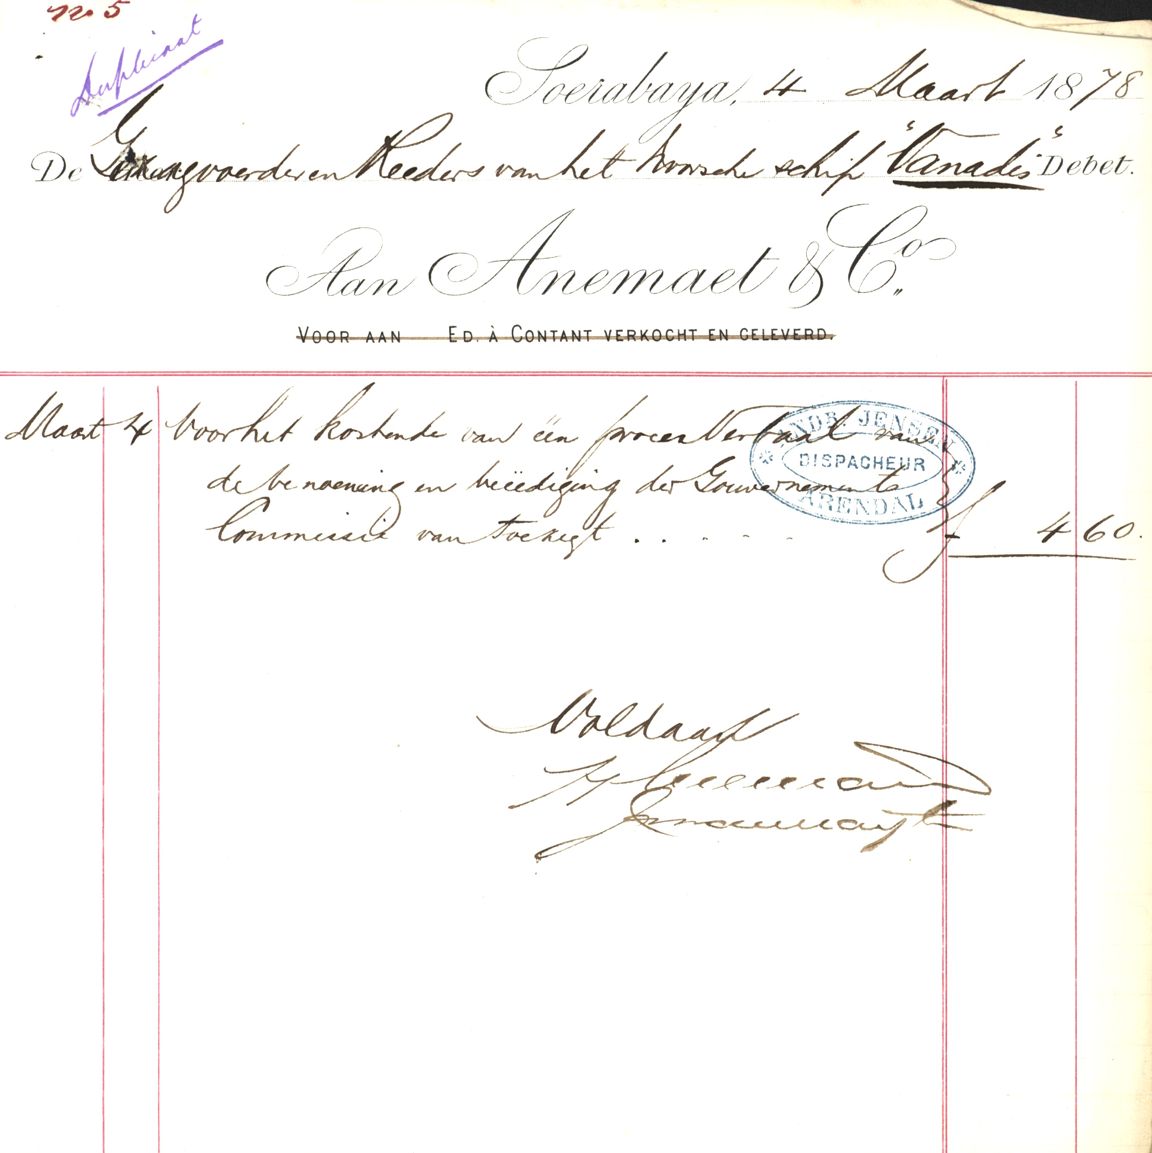 No 5
Duplicaat
Soerabaya, 4 Maart 1878
De Gezagvoerder en Reeders van het Noorsche schip "Vanadis" Debet.
Aan Anemaet & Co.
VOOR AAN ED. À CONTANT VERKOCHT EN GELEVERD.
Maart 4 Voor het kostende van een proces Verbaal van
de benoeming en beëediging der Gouvernements
Commissie van toezigt . . . . . f 4 60.
ANDR. JENSEN
DISPACHEUR
ARENDAL
Voldaan